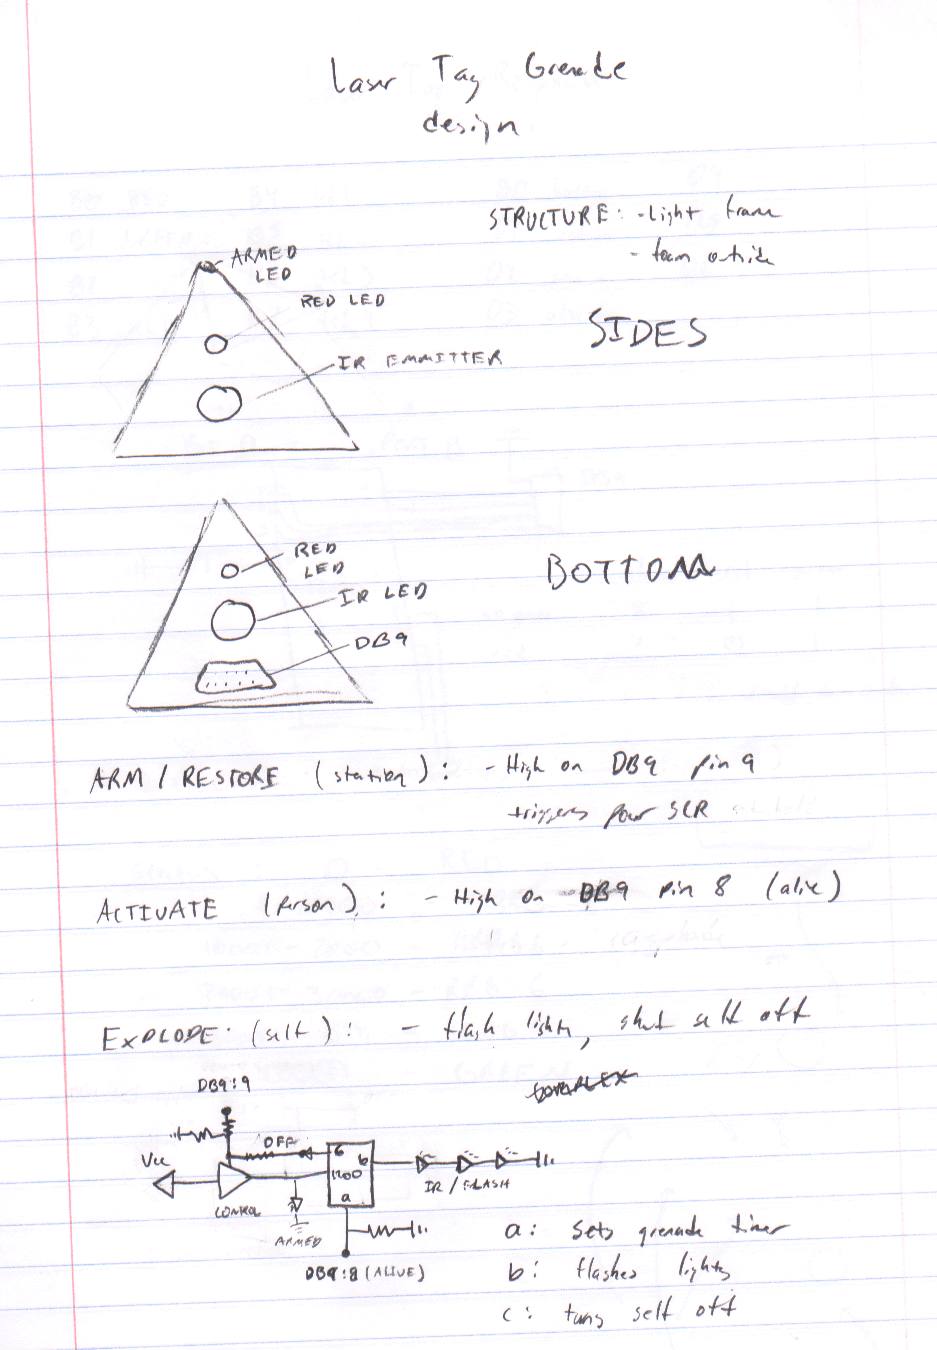 Laser Tag Grenade
design
STRUCTURE: - Light frame
- foam outside
ARMED
LED
RED LED
SIDES
IR EMMITTER
RED
LED
BOTTOM
IR LED
DB9
ARM / RESTORE (station): - High on DB9 pin 9
triggers power SCR
ACTIVATE (Person): - High on DB9 pin 8 (alive)
EXPLODE: (self): - flash lights, shut self off
COMPLEX
DB9:9
OFF
Vcc
c
b
1200
a
IR / FLASH
CONTROL
ARMED
DB9:8 (ALIVE)
a: sets grenade timer
b: flashes lights
c: turns self off